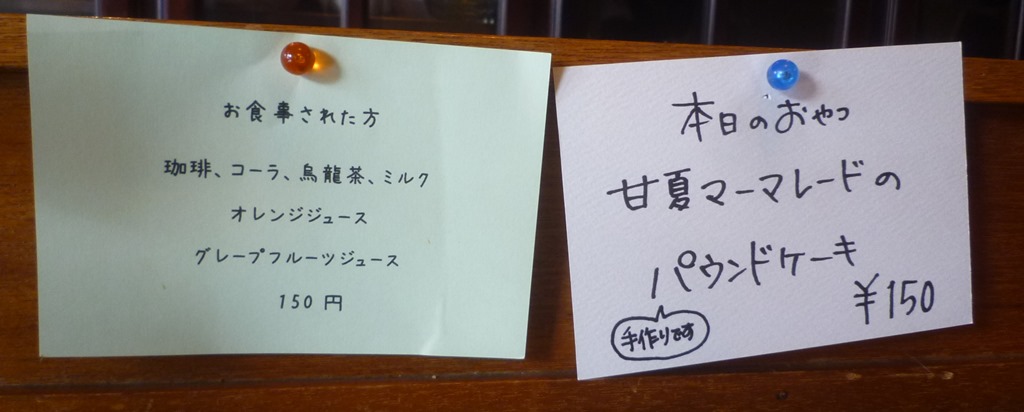 お食事された方
珈琲、コーラ、烏龍茶、ミルク
オレンジジュース
グレープフルーツジュース
150円
本日のおやつ
甘夏マーマレードの
パウンドケーキ
¥150
手作りです